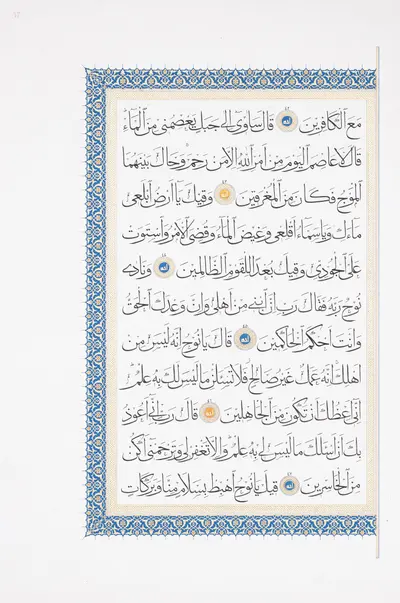 مع الكافرين الله قال ساوي الى جبل يعصمني من الماء
قال لا عاصم اليوم من امر الله الا من رحم وحال بينهما
الموج فكان من المغرقين الله وقيل يا ارض ابلعي
ماءك ويا سماء اقلعي وغيض الماء وقضي الامر واستوت
على الجودي وقيل بعدا للقوم الظالمين الله ونادى
نوح ربه فقال رب ان ابني من اهلي وان وعدك الحق
وانت احكم الحاكمين الله قال يا نوح انه ليس من
اهلك انه عمل غير صالح فلا تسئلن ما ليس لك به علم
اني اعظك ان تكون من الجاهلين الله قال رب اني اعوذ
بك ان اسئلك ما ليس لي به علم والا تغفر لي وترحمني اكن
من الخاسرين الله قيل يا نوح اهبط بسلام منا وبركات